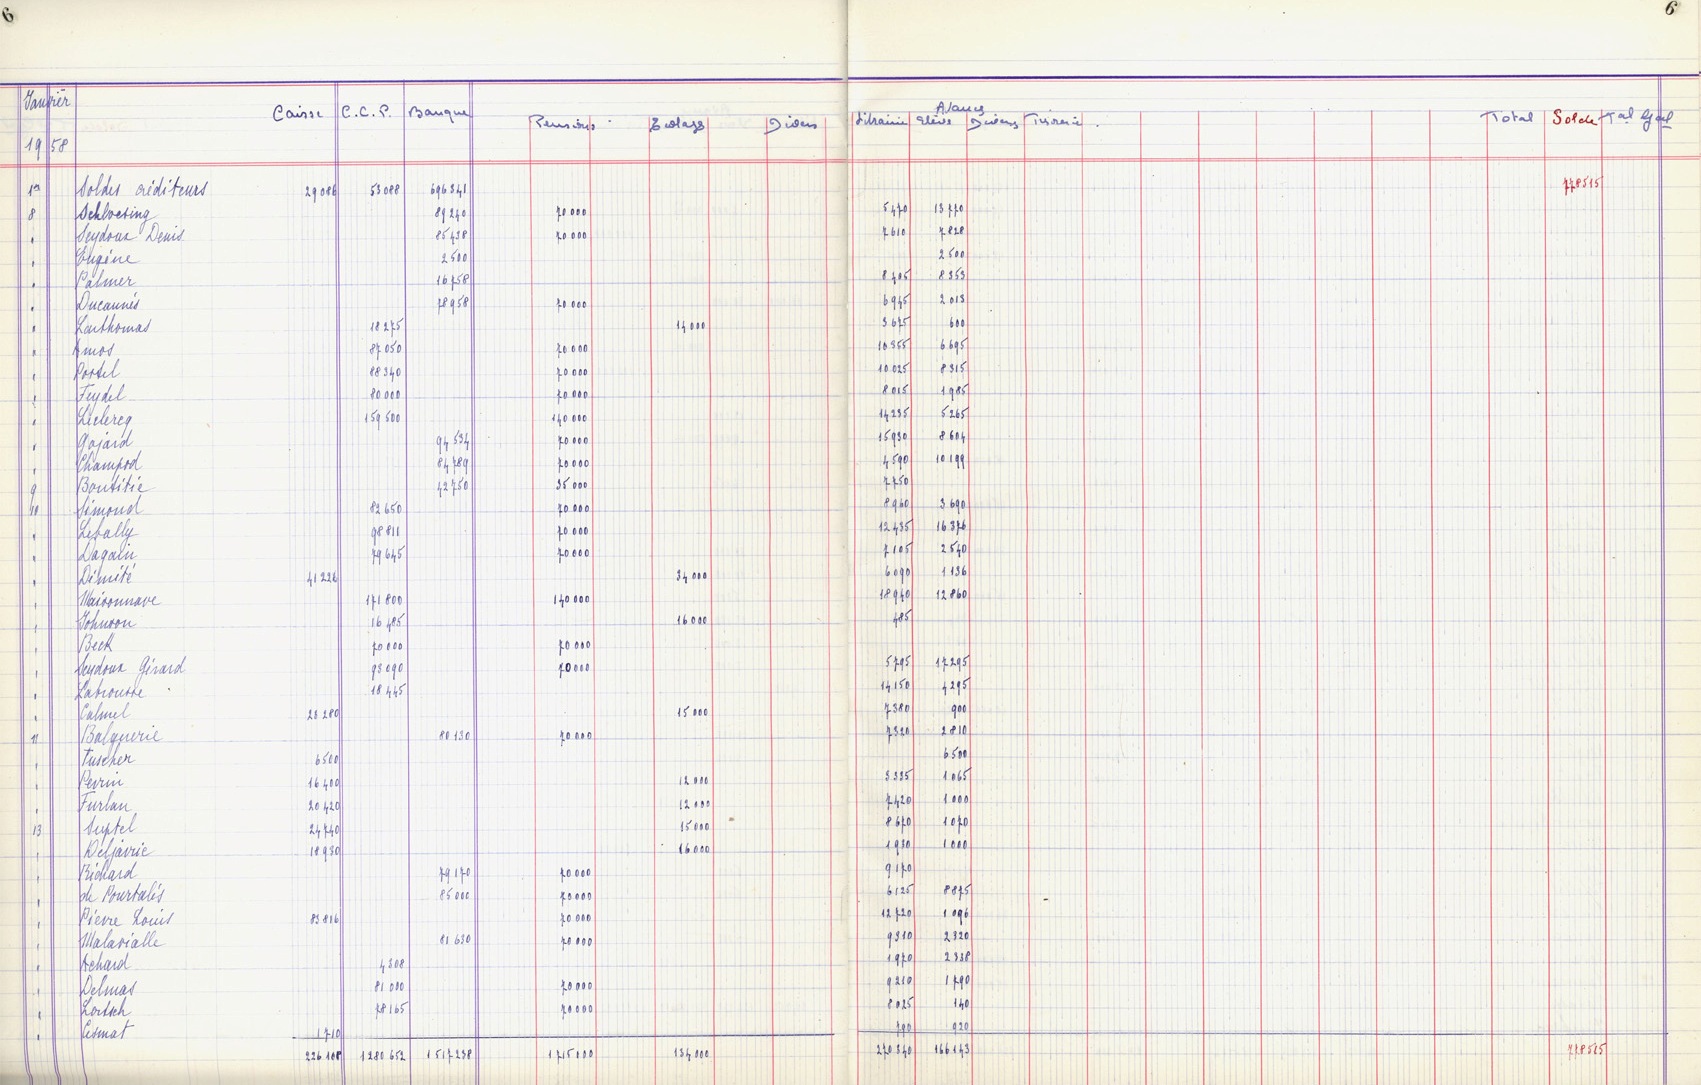 6 6
Janvier
1958
Caisse C.C.P. Banque Pensions Ecolage Divers Librairie Avance Elève Divers Total Solde Tal Gal
1er Soldes créditeurs 29086 53088 696341 778515
8 Schloesing 89240 70000 5470 13770
" Seydoux Denis 85438 70000 7610 7828
" Eugène 2500 2500
" Palmer 16758 8405 8353
" 78958 70000 6945 2013
" Larthomas 18275 14000 3675 600
" Amos 87050 70000 10355 6695
" Portel 88340 70000 10025 8315
" Feydel 80000 70000 8015 1985
" Leclercq 159500 140000 14235 5265
" Gajard 94534 70000 15930 8604
" Champod 84789 70000 4590 10199
9 42750 35000 7750
10 Simond 82650 70000 8960 3690
" 98811 70000 12435 16376
" Dagain 79645 70000 7105 2540
" 41226 34000 6090 1136
" Maisonnave 171800 140000 18940 12860
" Johnson 16485 16000 485
" Beck 70000 70000
" Seydoux Gérard 93090 70000 5795 17295
" Labrousse 18445 14150 4295
" Calmel 23280 15000 7380 900
11 Balguerie 80130 70000 7320 2810
" Tuscher 6500 6500
" Perrin 16400 12000 3335 1065
" Furlan 20420 12000 7420 1000
13 Septel 24740 15000 8670 1070
" 18930 16000 1930 1000
" Richard 79170 70000 9170
" de Pourtalès 85000 70000 6125 8875
" Pierre Louis 83816 70000 12720 1096
" Malavialle 81630 70000 9310 2320
" Achard 4308 1970 2338
" Delmas 81000 70000 9210 1790
" Loitsch 78165 70000 8025 140
" 1710 790 920
226108 1280652 1517238 1715000 134000 270340 166143 778515